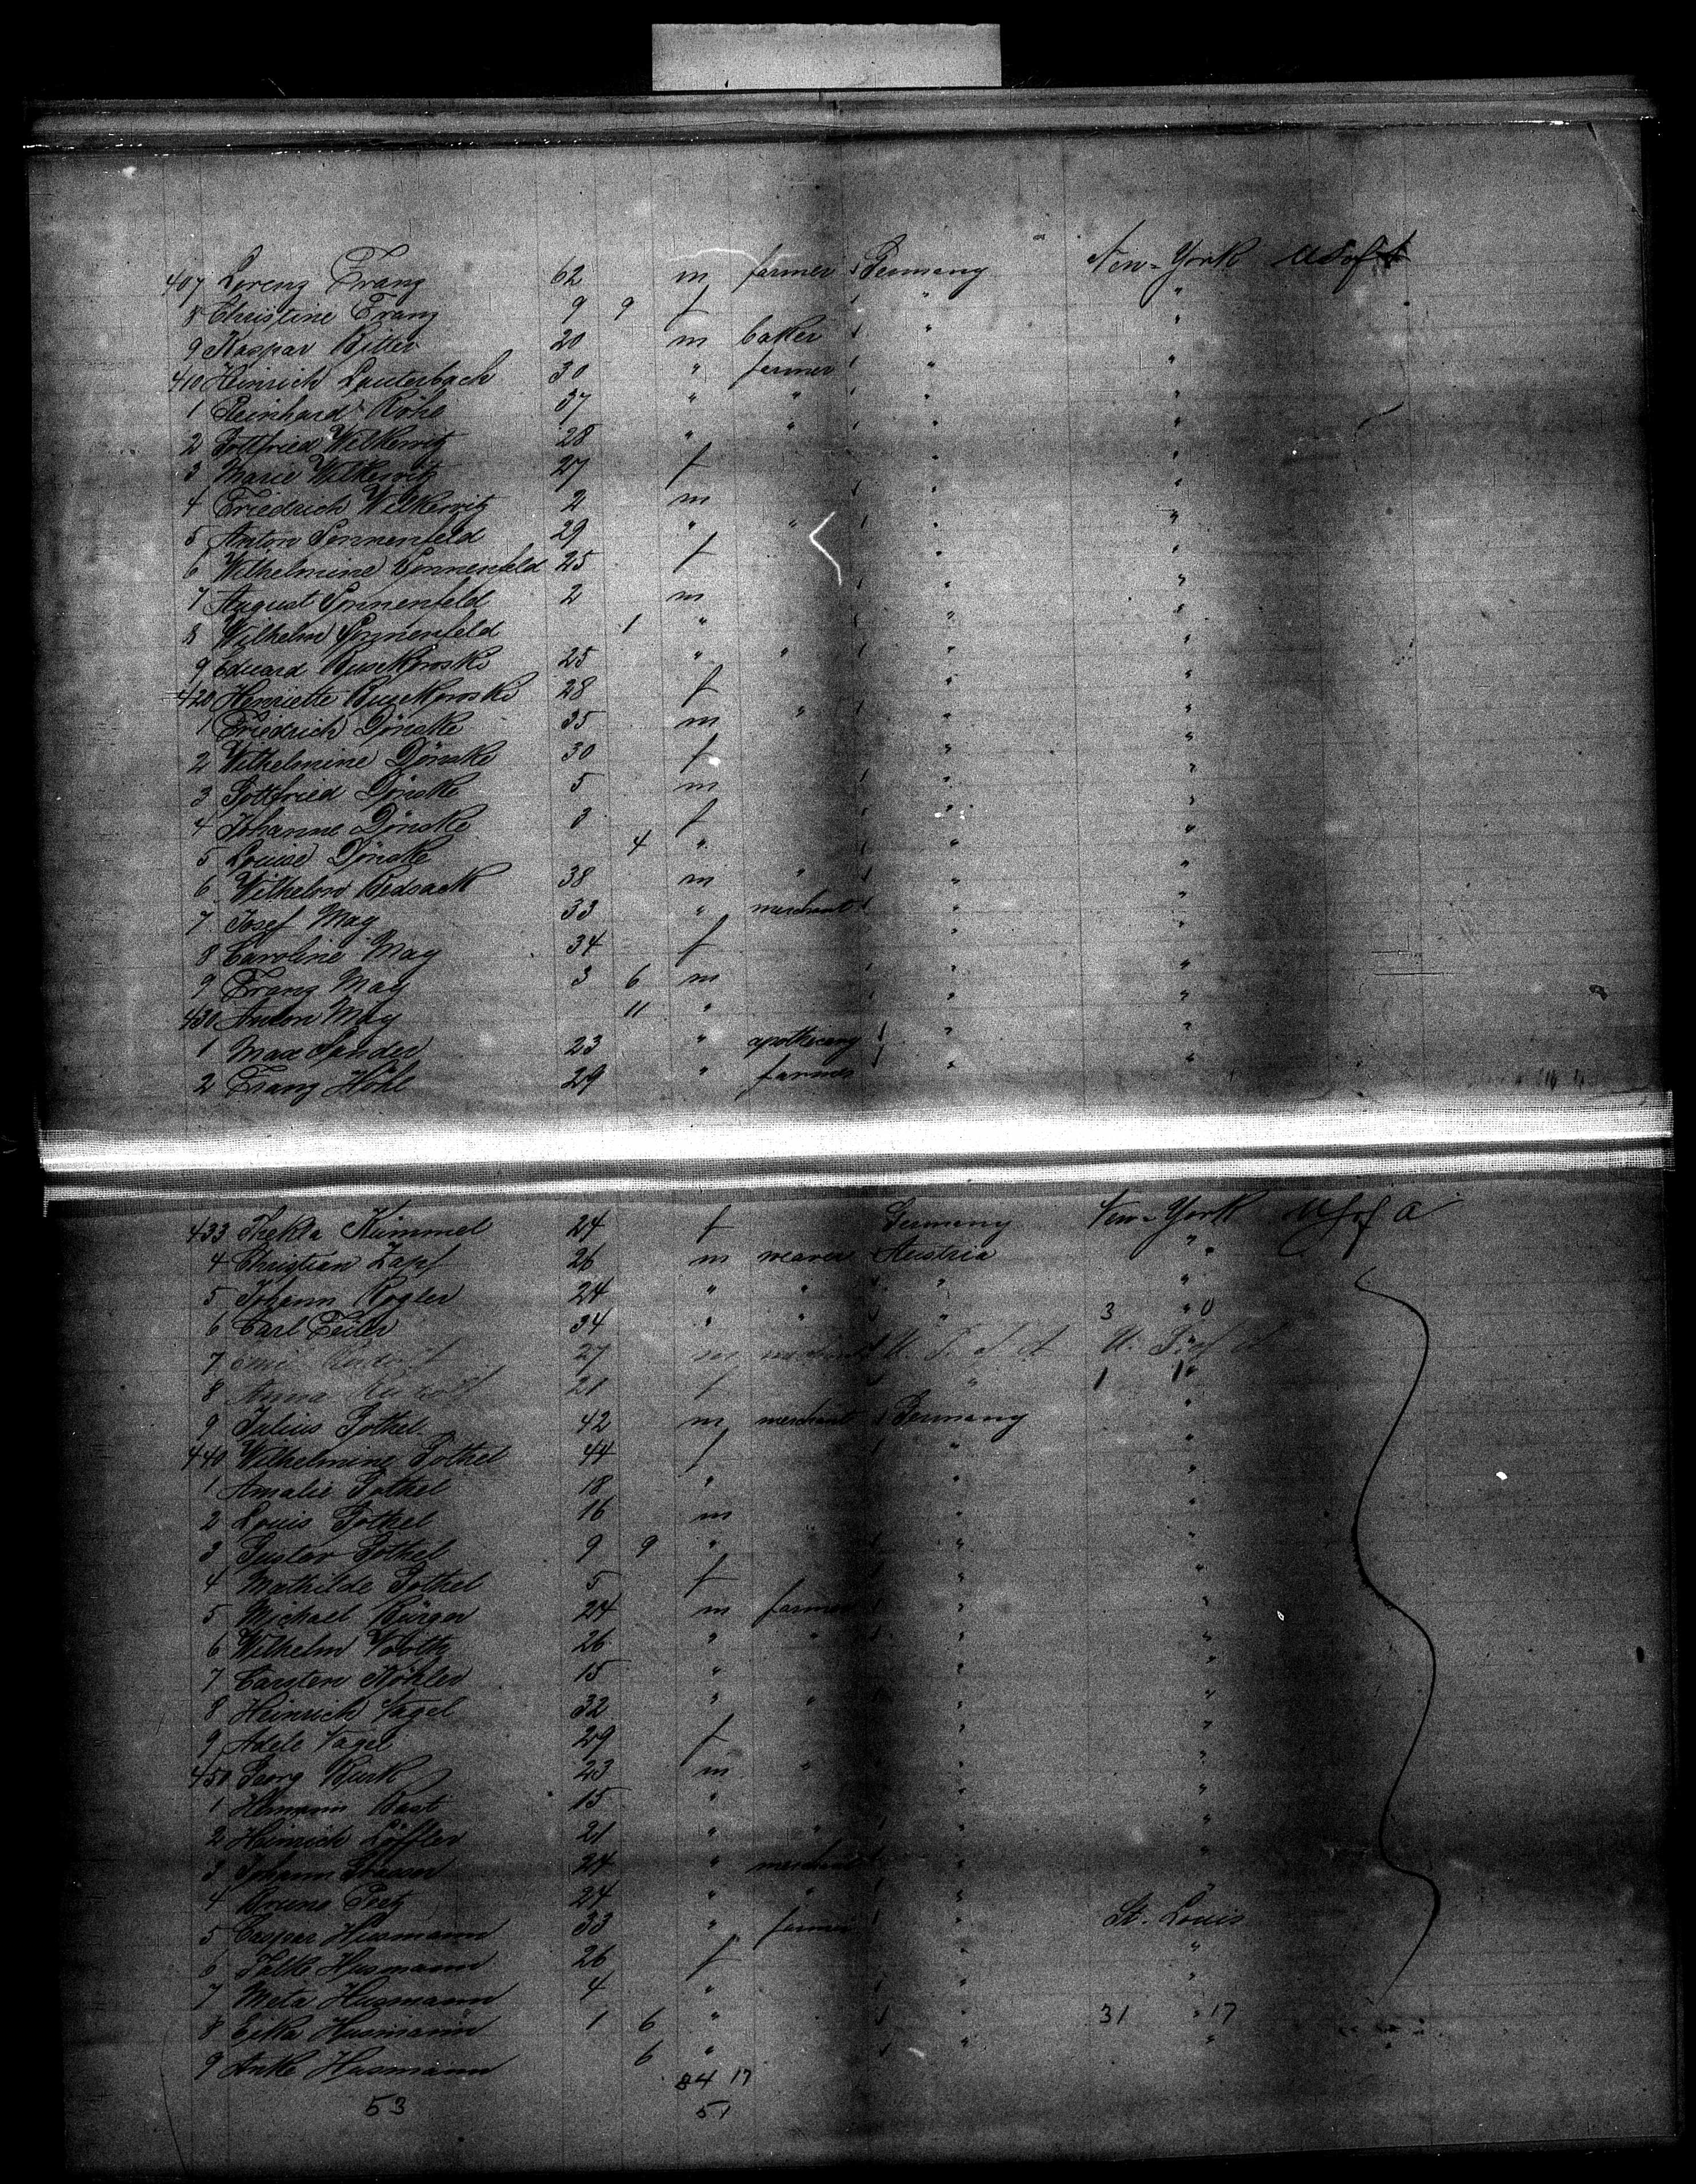 407 Lorenz Franz 62 m farmer Germany New-York U S of A
8 Christine Franz 9 9 f " "
9 Kaspar Ritter 20 m baker " "
410 Heinrich Lauterbach 30 " farmer " "
1 Reinhard Röhe 37 " " " "
2 Gottfried Wilkewitz 28 " " " "
3 Marie Wilkewitz 27 f " "
4 Friedrich Wilkewitz 2 m " "
5 Anton Sonnenfeld 29 " " " "
6 Wilhelmine Sonnenfeld 25 f " "
7 August Sonnenfeld 2 m " "
8 Wilhelm Sonnenfeld 1 " " "
9 Eduard 25 " " " "
420 Henriette 28 f " "
1 Friedrich Dönske 35 m " " "
2 Wilhelmine Dönske 30 f " "
3 Gottfried Dönske 5 m " "
4 Johanne Dönske 3 f " "
5 Louise Dönske 4 " " "
6 Wilhelm Bedsack 38 m " " "
7 Josef May 33 " merchant " "
8 Caroline May 34 f " "
9 Franz May 3 6 m " "
430 Anton May 11 " " "
1 Max Sander 23 " apothicary " "
2 Franz Höhl 29 " farmer " "
433 Thekla Kümmel 24 f Germany New-York U S of A
4 Christian Zapf 26 m weaver Austria "
5 Johann Kogler 24 " " " "
6 Carl 34 " " " 3 " 0
7 27 m U. S. of A U. S. of A
8 Anna 21 f " 1 1
9 Julius Gothel 42 m merchant Germany "
440 Wilhelmine Gothel 44 f " "
1 Amalie Gothel 18 " " "
2 Louis Gothel 16 m " "
3 Gustav Gothel 9 9 " " "
4 Mathilde Gothel 5 f " "
5 Michael Bürger 24 m farmer " "
6 Wilhelm 26 " " " "
7 Carsten Köhler 15 " " "
8 Heinrich Vagel 32 " " " "
9 Adele Vagel 29 f " "
450 Georg 23 m " " "
1 Hermann Bast 15 " " "
2 Heinrich Löffler 21 " " " "
3 Johann 24 " merchant " "
4 Bruno 24 " " " "
5 Caspar Husmann 33 " farmer " St. Louis
6 Husmann 26 f " "
7 Meta Husmann 4 " " "
8 Eika Husmann 1 6 " " 31 " 17
9 Anke Husmann 6 " " "
53 34 17
51